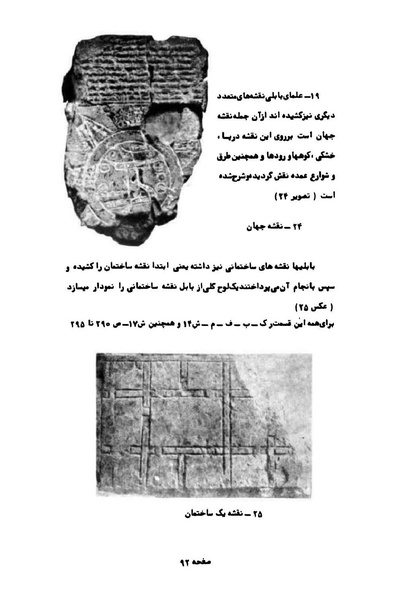 ۱۹ــ علمای بابلی نقشه‌های متعدد
دیگری نیز کشیده اند ازآن جمله نقشه
جهان است برروی این نقشه دریا ،
خشکی ، کوهها و رودها و همچنین طرق
و شوارع عمده نقش گردیده وشرح شده
است ( تصویر ۲۴ )
۲۴ ــ نقشه جهان
بابلیها نقشه های ساختمانی نیز داشته یعنی ابتدا نقشه ساختمان را کشیده و
سپس بانجام آن می پرداختند یک لوح گلی از بابل نقشه ساختمانی را نمودار میسازد
( عکس ۲۵ )
برای همه این قسمت ر ک ــ ب ــ ف ــ م ــ ش ۱۴ و همچنین ش ۱۷ــ ص ۲۹۰ تا ۲۹۵
۲۵ ــ نقشه یک ساختمان
صفحه ۹۲